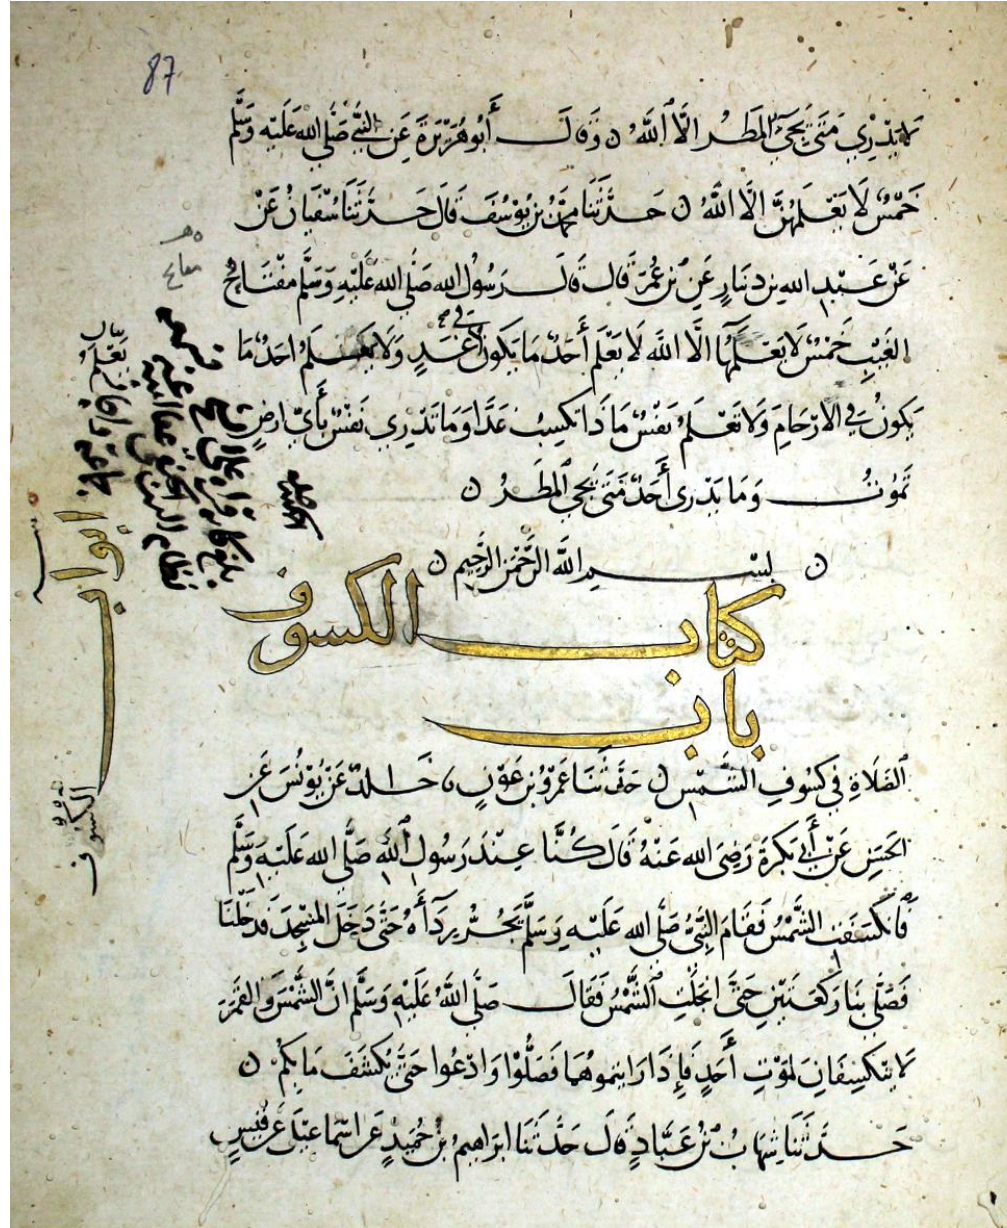 87
لَا يَدْرِي مَتَى يَجِيُ الْمَطَرُ الَّا اللَّهُ ن وَقَالَ أَبُو هُرَيْرَةَ عَنِ النَّبِيِّ صَلَّى الله عَلَيْهِ وَسَلَّم
خَمْسٌ لَا يَعْلَمُهُنَّ الَّا اللَّهُ ن حَدَّثَنَا مُحَمَّدُ بْنُ يُوسُفَ قَالَ حَدَّثَنَا سُفْيَانُ عَنْ
عَنْ عَبْدِ اللهِ بنِ دِينَارٍ عَنِ بْنِ عُمَرَ قَالَ قَالَ رَسُولُ اللهِ صَلَّى الله عَلَيْهِ وَسَلَّم مِفْتَاحُ
الغَيْبِ خَمْسٌ لَا يَعْلَمُهَا الَّا اللَّه لَا يَعْلَمُ أَحَدٌ مَا يَكُونُ فِي غَدٍ وَلَا يَعْلَمُ احَدٌ مَا
يَكُونُ فِي الارْحَامِ وَلَا تَعْلَمُ نَفْسٌ مَاذَا تَكْسِبُ غَدًا وَمَا تَدْرِي نَفْسٌ بِأَيِّ ارضٍ
تَمُوتُ وَمَا يَدْرِى أَحَدٌ مَتَى يَجِيُ الْمَطَرُ ن
ن بِسْمِ اللَّهِ الرَّحْمَنِ الرَّحِيمِ ن
كتاب الكسوف
باب
الصَّلَاةِ فِي كُسُوفِ الشَّمْسِ ن حَدَّثَنَا عَمْرُو بْنُ عَوْنٍ خَالِدٌ عَنْ يُونُسَ عَنِ
الحَسَنِ عَنْ أَبِي بَكْرَةَ رَضِيَ الله عَنْهُ قَالَ كُنَّا عِنْدَ رَسُولِ اللَّهِ صَلَّى الله عَلَيْهِ وَسَلَّم
فَانْكَسَفَتِ الشَّمْسُ فَقَامَ النَّبِيُّ صَلَّى الله عَلَيْهِ وَسَلَّمَ يَجُرُّ رِدَآَهُ حَتَّى دَخَلَ الْمَسْجِدَ فَدَخَلْنَا
فَصَلَّى بِنَا رَكْعَتَيْنِ حَتَّى انْجَلَتِ الشَّمْسُ فَقَالَ صَلَّى اللَّهُ عَلَيْهِ وَسَلَّم انَّ الشَّمْسَ وَالقَمَرَ
لَا يَنْكَسِفَانِ لِمَوْتِ أَحَدٍ فَإِذَا رَايتموهُمَا فَصَلُّوْا وَادْعُوا حَتَّى يُكْشَفَ مَا بِكُمْ ن
حَدَّثَنَا شِهَابُ بْنُ عَبَّادٍ قَالَ حَدَّثَنَا ابرَاهِيمُ بْنُ حُمَيْدٍ عَن اسْمَاعِيلَ عَنْ قَيْسٍ
ابواب
الكسوف